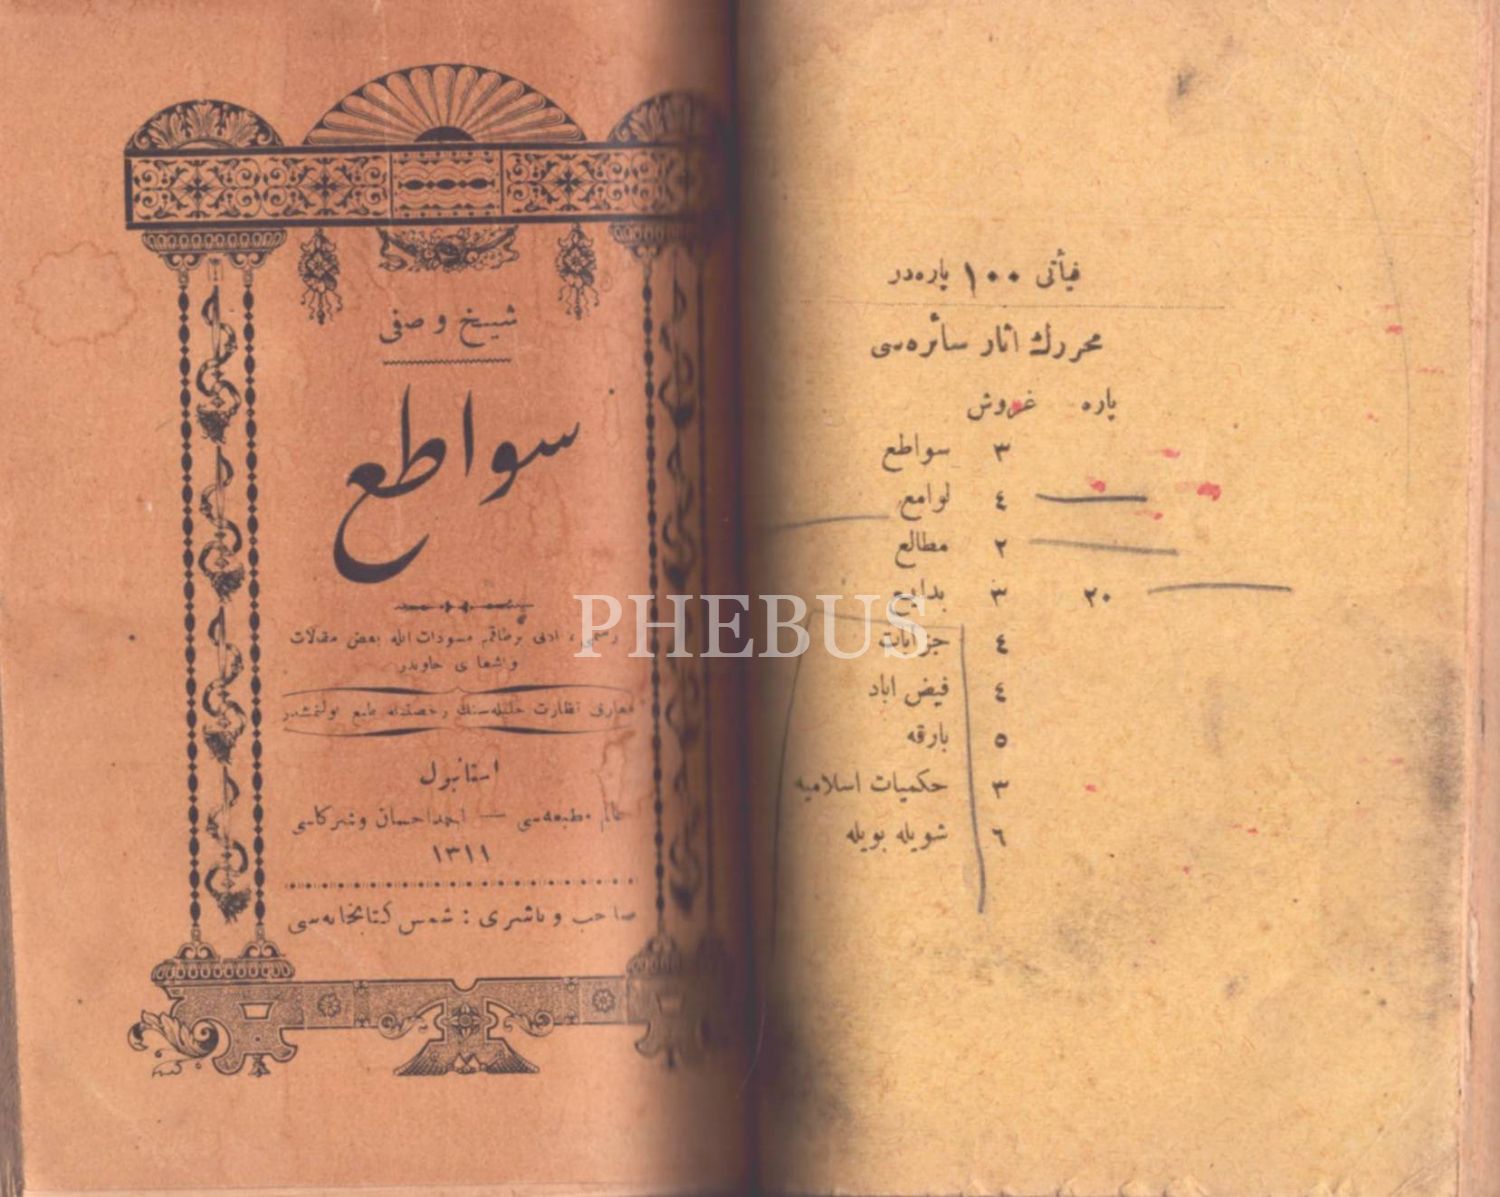 شيخ وصفی
سواطع
رسمی ، ادبی برطاقم مسودات ايله بعض مقالات
و اشعاری حاويدر
معارف نظارت جليله‌سنك رخصتيله طبع اولنمشدر
استانبول
عالم مطبعه‌سی — احمد احسان وشركاسی
١٣١١
صاحب و ناشری : شمس كتابخانه‌سی
فيأتی ١٠٠ پاره‌در
محررك آثار سائره‌سی
پاره غروش
٣ سواطع
٤ لوامع
٢ مطالع
٢٠ ٣ بدايع
٤ جزابات
٤ فيض اباد
٥ بارقه
٣ حكميات اسلاميه
٦ شويله بويله
PHEBUS